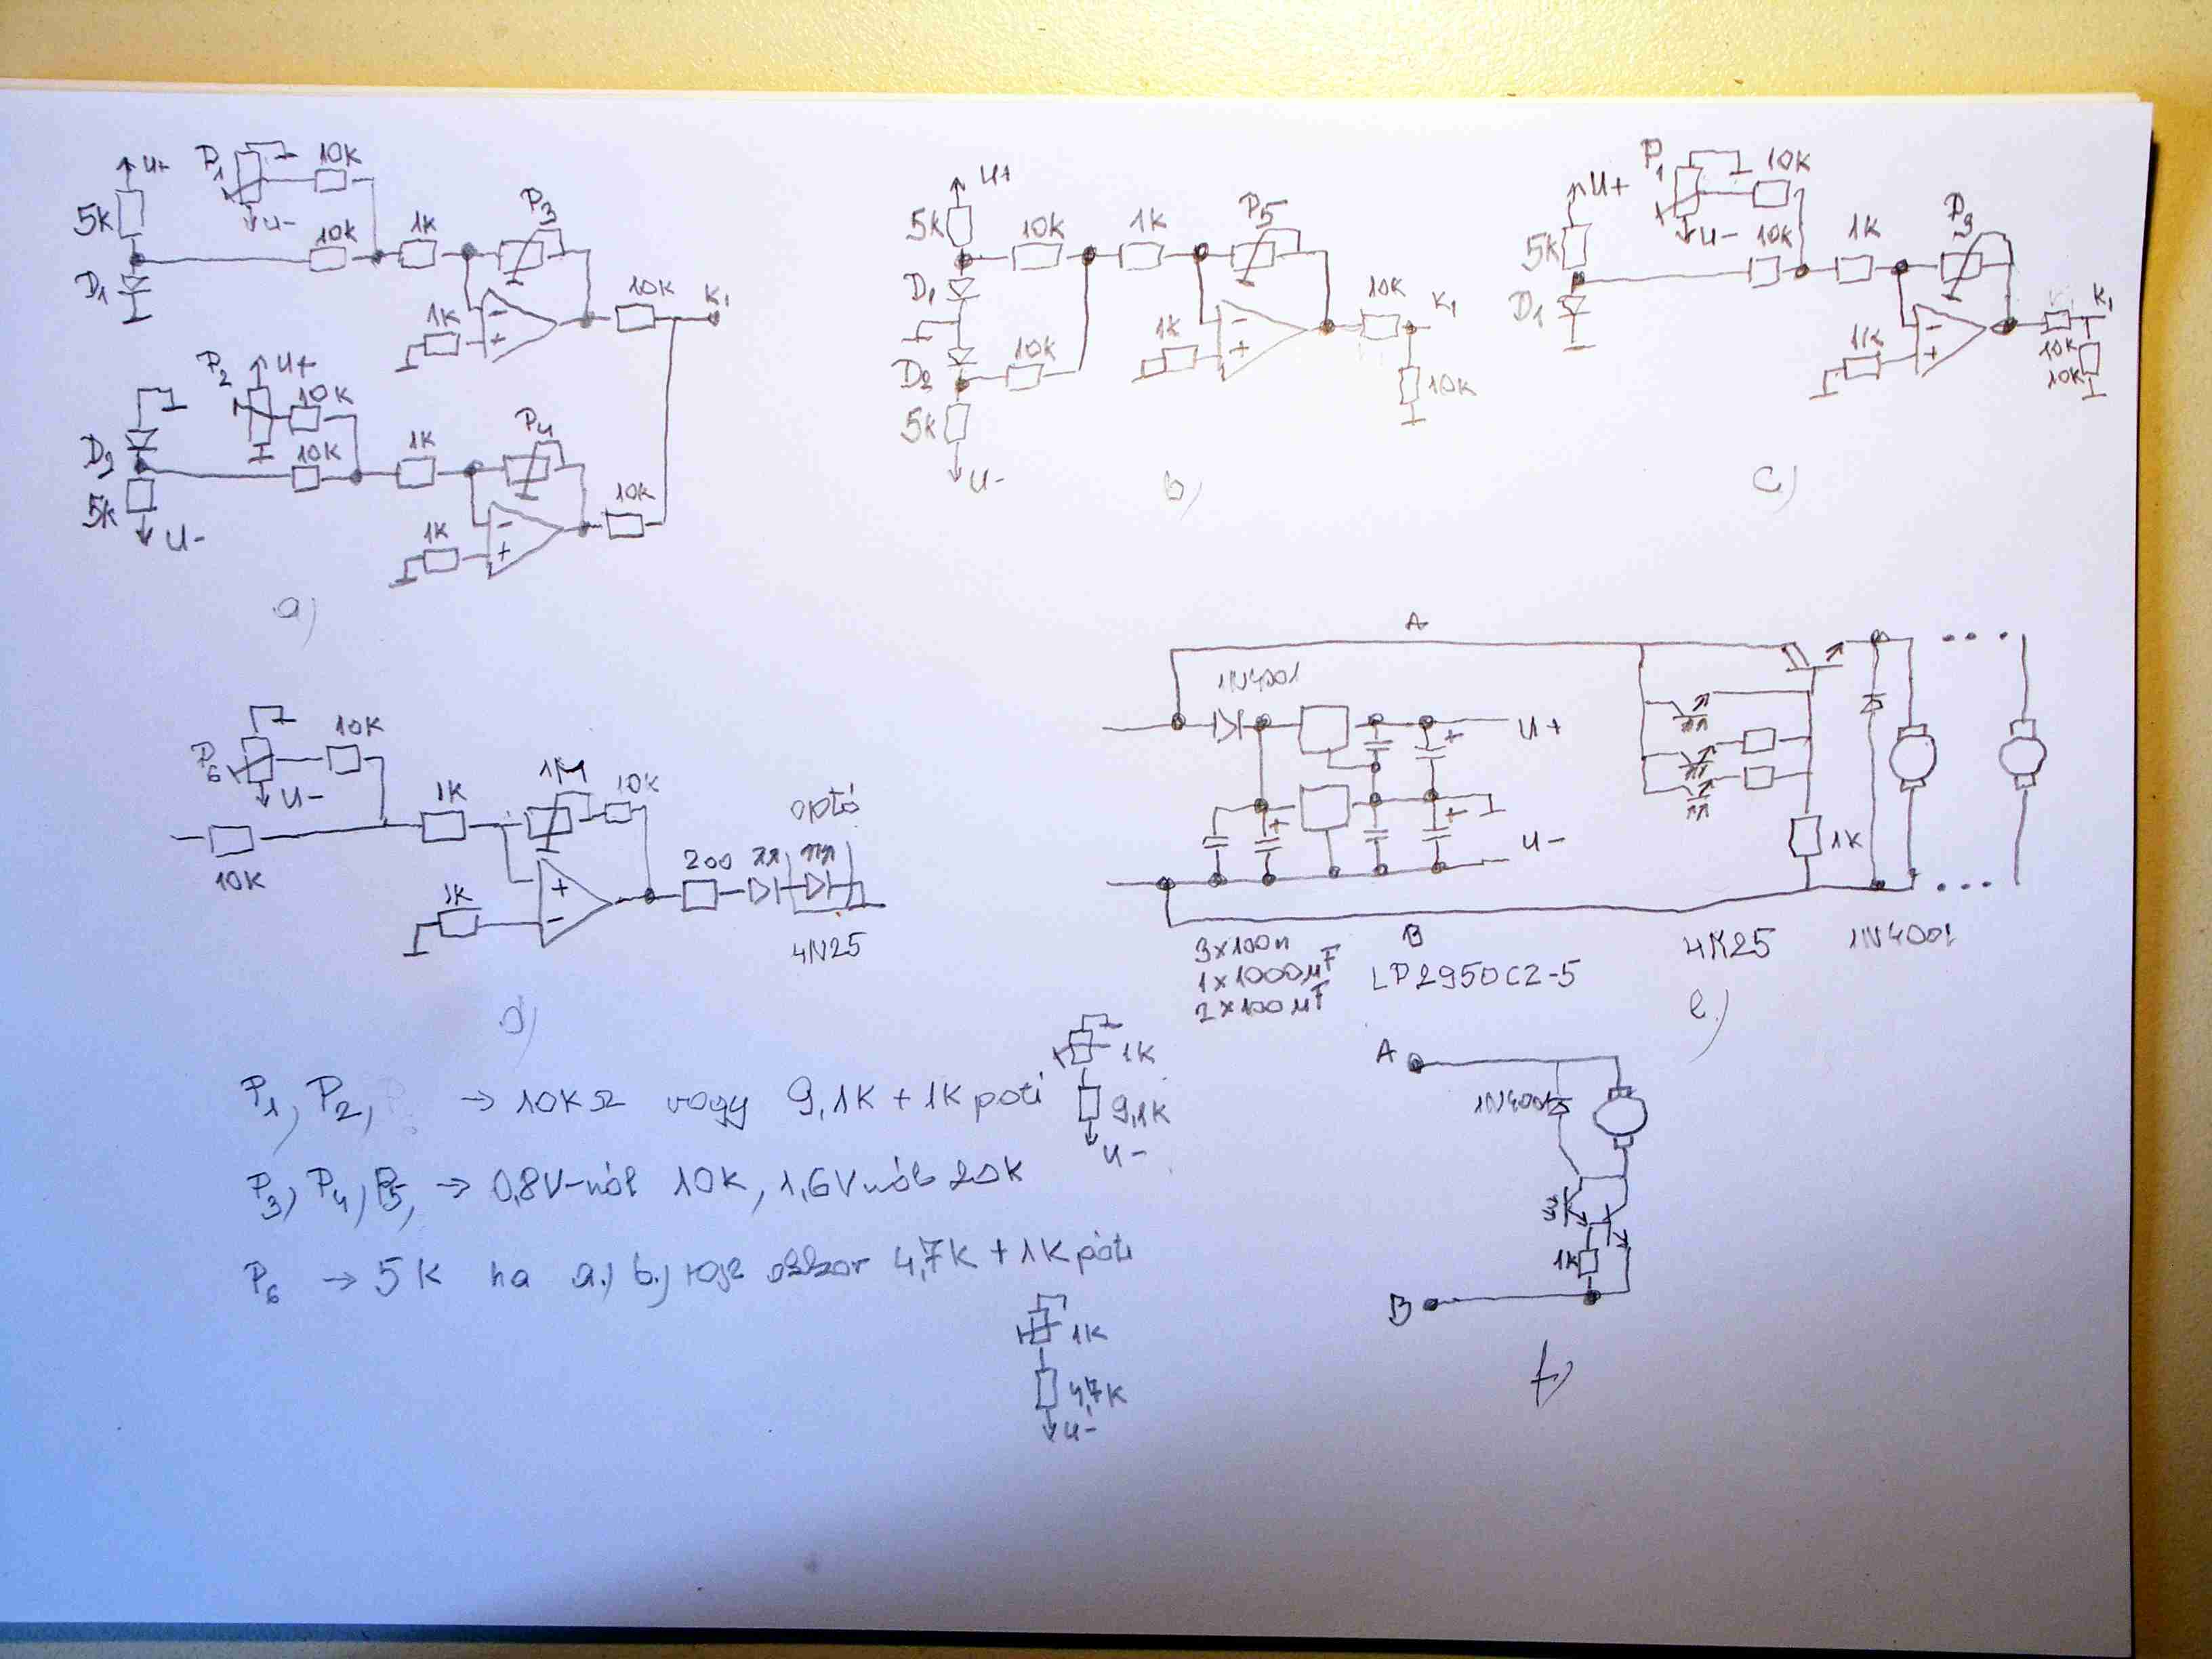 U+
P1
10K
5K
U-
10K
1K
P3
D1
1K
-
+
10K
K1
P2
U+
10K
D2
10K
1K
P4
5K
U-
1K
-
+
10K
a)
U+
5K
10K
1K
P5
D1
1K
-
+
10K
K1
D2
10K
5K
10K
U-
b)
P1
10K
U+
5K
U-
10K
1K
P3
D1
1K
-
+
10K
10K
K1
c)
P6
10K
U-
10K
1K
1M
10K
1K
+
-
200
optó
4N25
d)
A
1N4001
U+
+
+
+
U-
1K
3x100n
1x1000µF
2x100µF
B
LP2950CZ-5
4N25
1N4001
e)
P1, P2, → 10KΩ vagy 9,1K + 1K poti
1K
9,1K
U-
P3, P4, P5, → 0,8V-nál 10K, 1,6V nál 20K
P6 → 5K ha a.) b.) rajz 4,7K + 1K poti
1K
4,7K
U-
A
1N4001
1K
B
f)